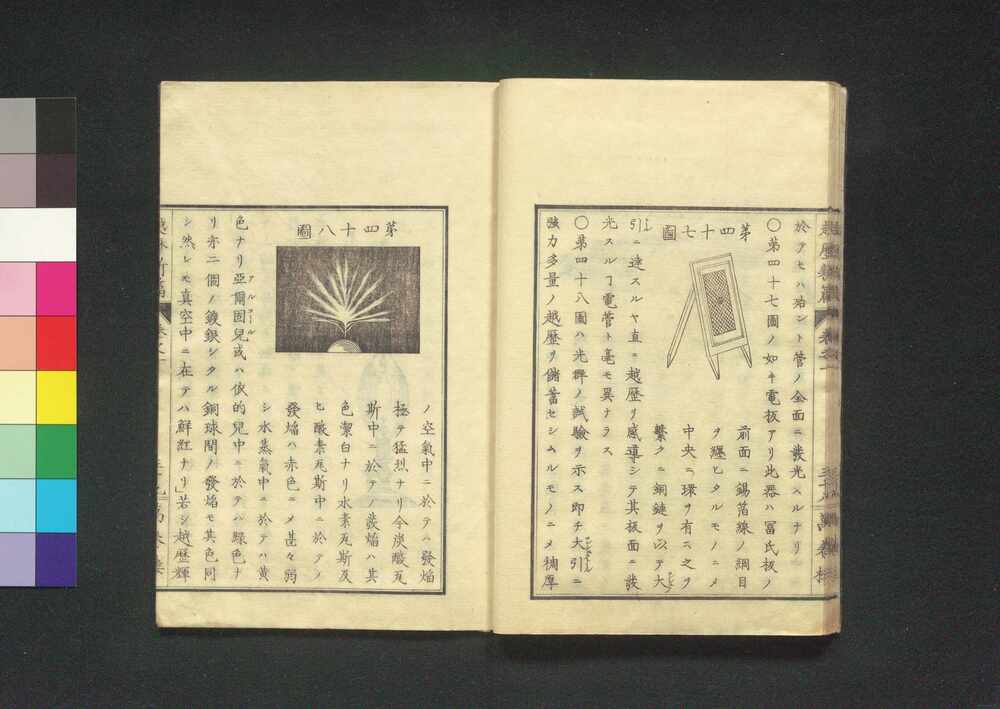 於テセハ殆ント管ノ全面ニ發光スルナリ
〇第四十七圖ノ如キ電板アリ此器ハ冨氏板ノ
第四十七圖
前面ニ錫箔線ノ網目
ヲ纏ヒタルモノニメ
中央ニ環ヲ有ニ之ヲ
繋クニ銅鏈ヲ以テ大
引ニ達スルヤ直ニ越歴リ感導シテ其板面ニ發
光スルヿ電管ト毫モ異ナラス
〇第四十八圖ハ光群ノ試驗ヲ示ス即チ大引ニ
強力多量ノ越歴ヲ儲蓄セシムルモノニメ稠厚
第四十八圖
ノ空氣中ニ於テハ發焔
極テ猛烈ナリ今炭酸瓦
斯中ニ於テノ發焔ハ其
色潔白ナリ水素瓦斯及
ヒ酸素瓦斯中ニ於テノ
發焔ハ赤色ニメ甚々弱
シ水蒸氣中ニ於テハ黄
色ナリ亞爾固兒或ハ依的兒中ニ於テハ緑色ナ
アルコール
リ亦二個ノ鍍銀シタル銅球間ノ發焔モ其色同
シ然レモ真空中ニ在テハ鮮紅ナリ」若シ越歴輝